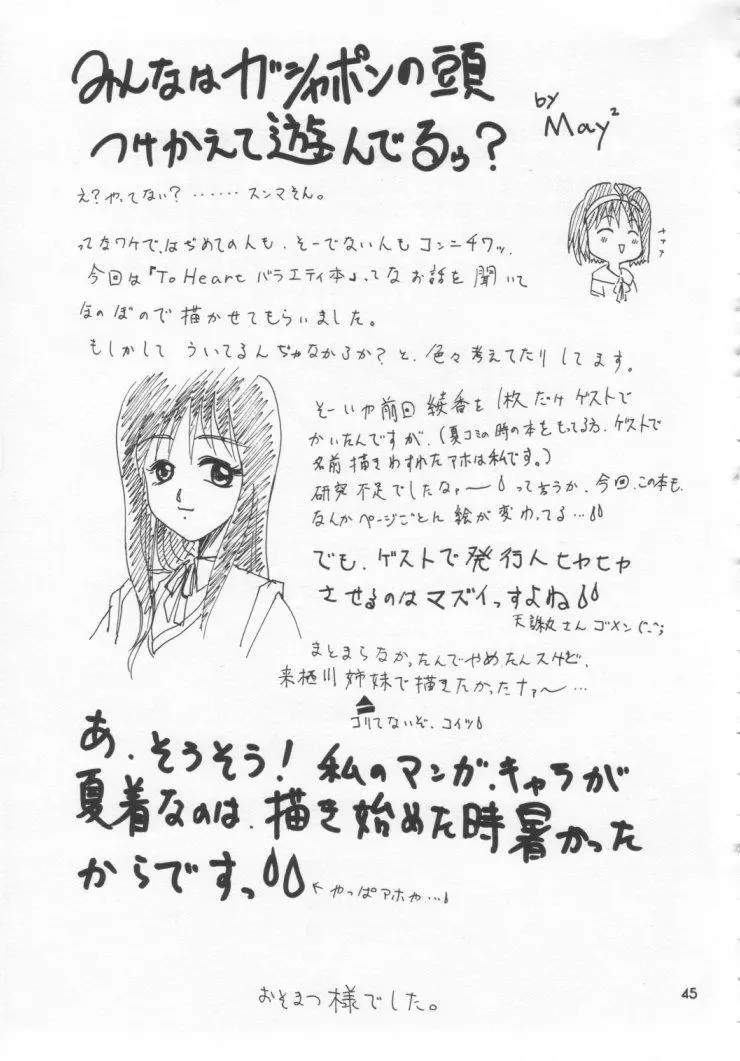 みんなはガシャポンの頭
つけかえて遊んでるぅ?
by
May²
え?やってない?……スンマそん。
ってなワケで、はぢめての人も、そーでない人もコンニチワッ。
今回は『To Heart バラエティ本』ってなお話を聞いて
ほのぼので描かせてもらいました。
もしかして ういてるんぢゃなかろか?と、色々考えてたりしてます。
そーいや前回 綾香を1枚だけゲストで
かいたんですが、(夏コミの時の本をもってる方、ゲストで
名前描きわすれたアホは私です。)
研究不足でしたなァ〜 って言うか、今回、この本も、
なんかページごとん絵が変わってる…
でも、ゲストで発行人ヒヤヒヤ
させるのはマズイっすよね
さんゴメン(^_^;
まとまらなかったんでやめたんスけど、
来栖川姉妹で描きたかったナァ〜…
コリてないぞ、コイツ
あ、そうそう! 私のマンガ、キャラが
夏着なのは、描き始めた時暑かった
からですっ
←やっぱアホや…
おそまつ様でした。
45